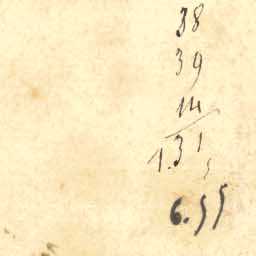 38
39
14
1.31
5
6.55